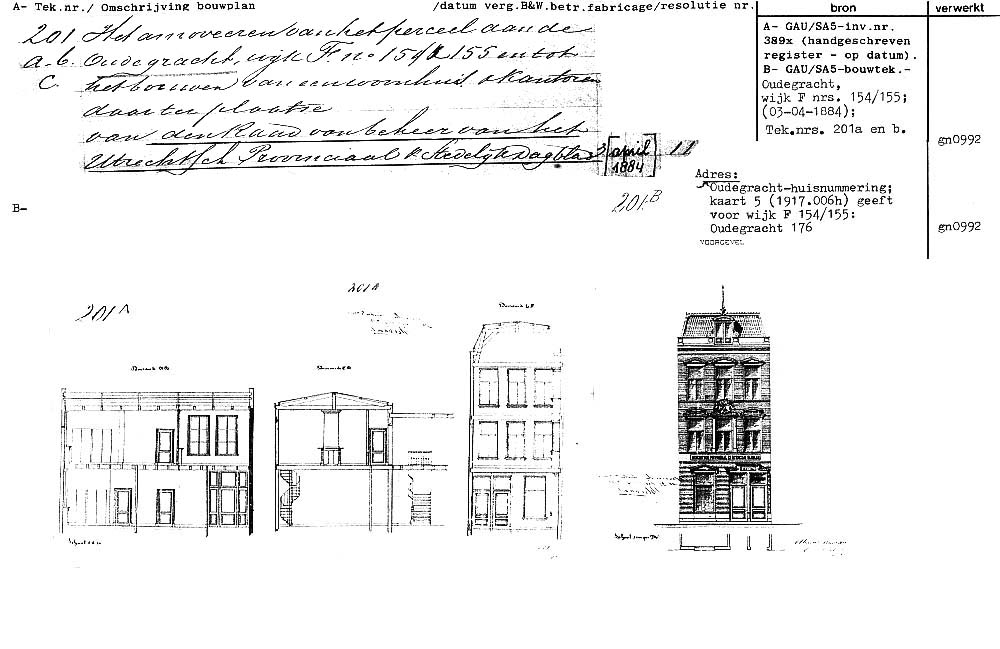 A- Tek.nr./ Omschrijving bouwplan /datum verg.B&W.betr.fabricage/resolutie nr.
bron
verwerkt
201 Het amoveeren van het perceel aan de
a.b. Oudegracht, wijk F. no 154 & 155 en tot
C. het bouwen van een woonhuis & kantoren
daar ter plaatse
van den Raad van beheer van het
Utrechtsch Provinciaal & Stedelijk Dagblad 3 april 1884
201B
A- GAU/SA5-inv.nr.
389x (handgeschreven
register - op datum).
B- GAU/SA5-bouwtek.-
Oudegracht,
wijk F nrs. 154/155;
(03-04-1884);
Tek.nrs. 201a en b.
gn0992
Adres:
Oudegracht-huisnummering;
kaart 5 (1917.006h) geeft
voor wijk F 154/155:
Oudegracht 176
gn0992
VOORGEVEL
B-
201A
201A